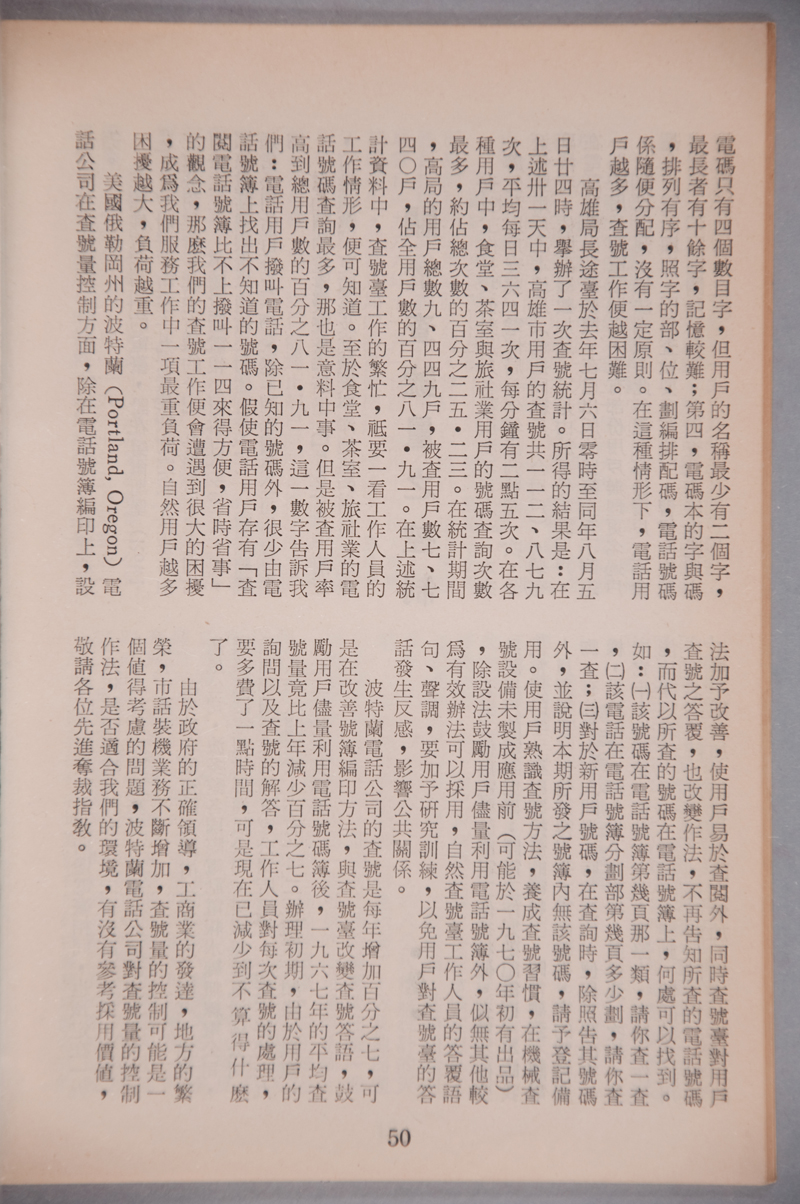 電碼只有四個數目字，但用戶的名稱最少有二個字，
最長者有十餘字，記憶較難；第四，電碼本的字與碼
，排列有序，照字的部、位、劃編排配碼，電話號碼
係隨便分配，沒有一定原則。在這種情形下，電話用
戶越多，查號工作便越困難。
高雄局長途臺於去年七月六日零時至同年八月五
日廿四時，舉辦了一次查號統計。所得的結果是：在
上述卅一天中，高雄市用戶的查號共一一二、八七九
次，平均每日三六四一次，每分鐘有二點五次。在各
種用戶中，食堂、茶室與旅社業用戶的號碼查詢次數
最多，約佔總次數的百分之二五・二三。在統計期間
，高局的用戶總數九、四四九戶，被查用戶數七、七
四〇戶，佔全用戶數的百分之八一・九一。在上述統
計資料中，查號臺工作的繁忙，祗要一看工作人員的
工作情形，便可知道。至於食堂、茶室、旅社業的電
話號碼查詢最多，那也是意料中事。但是被查用戶率
高到總用戶數的百分之八一・九一，這一數字告訴我
們：電話用戶撥叫電話，除已知的號碼外，很少由電
話號簿上找出不知道的號碼。假使電話用戶存有「查
閱電話號簿比不上撥叫一一四來得方便，省時省事」
的觀念，那麼我們的查號工作便會遭遇到很大的困擾
，成爲我們服務工作中一項最重負荷。自然用戶越多
困擾越大，負荷越重。
美國俄勒岡州的波特蘭（Portland, Oregon）電
話公司在查號量控制方面，除在電話號簿編印上，設
法加予改善，使用戶易於查閱外，同時查號臺對用戶
查號之答覆，也改變作法，不再告知所查的電話號碼
，而代以所查的號碼在電話號簿上，何處可以找到。
如：㈠該號碼在電話號簿第幾頁那一類，請你查一查
，㈡該電話在電話號簿分劃部第幾頁多少劃，請你查
一查；㈢對於新用戶號碼，在查詢時，除照告其號碼
外，並說明本期所發之號簿內無該號碼，請予登記備
用。使用戶熟識查號方法，養成查號習慣，在機械查
號設備未製成應用前（可能於一九七〇年初有出品）
，除設法鼓勵用戶儘量利用電話號簿外，似無其他較
爲有效辦法可以採用，自然查號臺工作人員的答覆語
句、聲調，要加予研究訓練，以免用戶對查號臺的答
話發生反感，影響公共關係。
波特蘭電話公司的查號是每年增加百分之七，可
是在改善號簿編印方法，與查號臺改變查號答語，鼓
勵用戶儘量利用電話號碼簿後，一九六七年的平均查
號量竟比上年減少百分之七。辦理初期，由於用戶的
詢問以及查號的解答，工作人員對每次查號的處理，
要多費了一點時間，可是現在已減少到不算得什麼
了。
由於政府的正確領導，工商業的發達，地方的繁
榮，市話裝機業務不斷增加，查號量的控制可能是一
個值得考慮的問題，波特蘭電話公司對查號量的控制
作法，是否適合我們的環境，有沒有參考採用價値，
敬請各位先進奪裁指教。
50